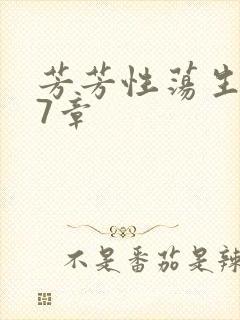 芳芳性荡生
7章
不是番茄是辣